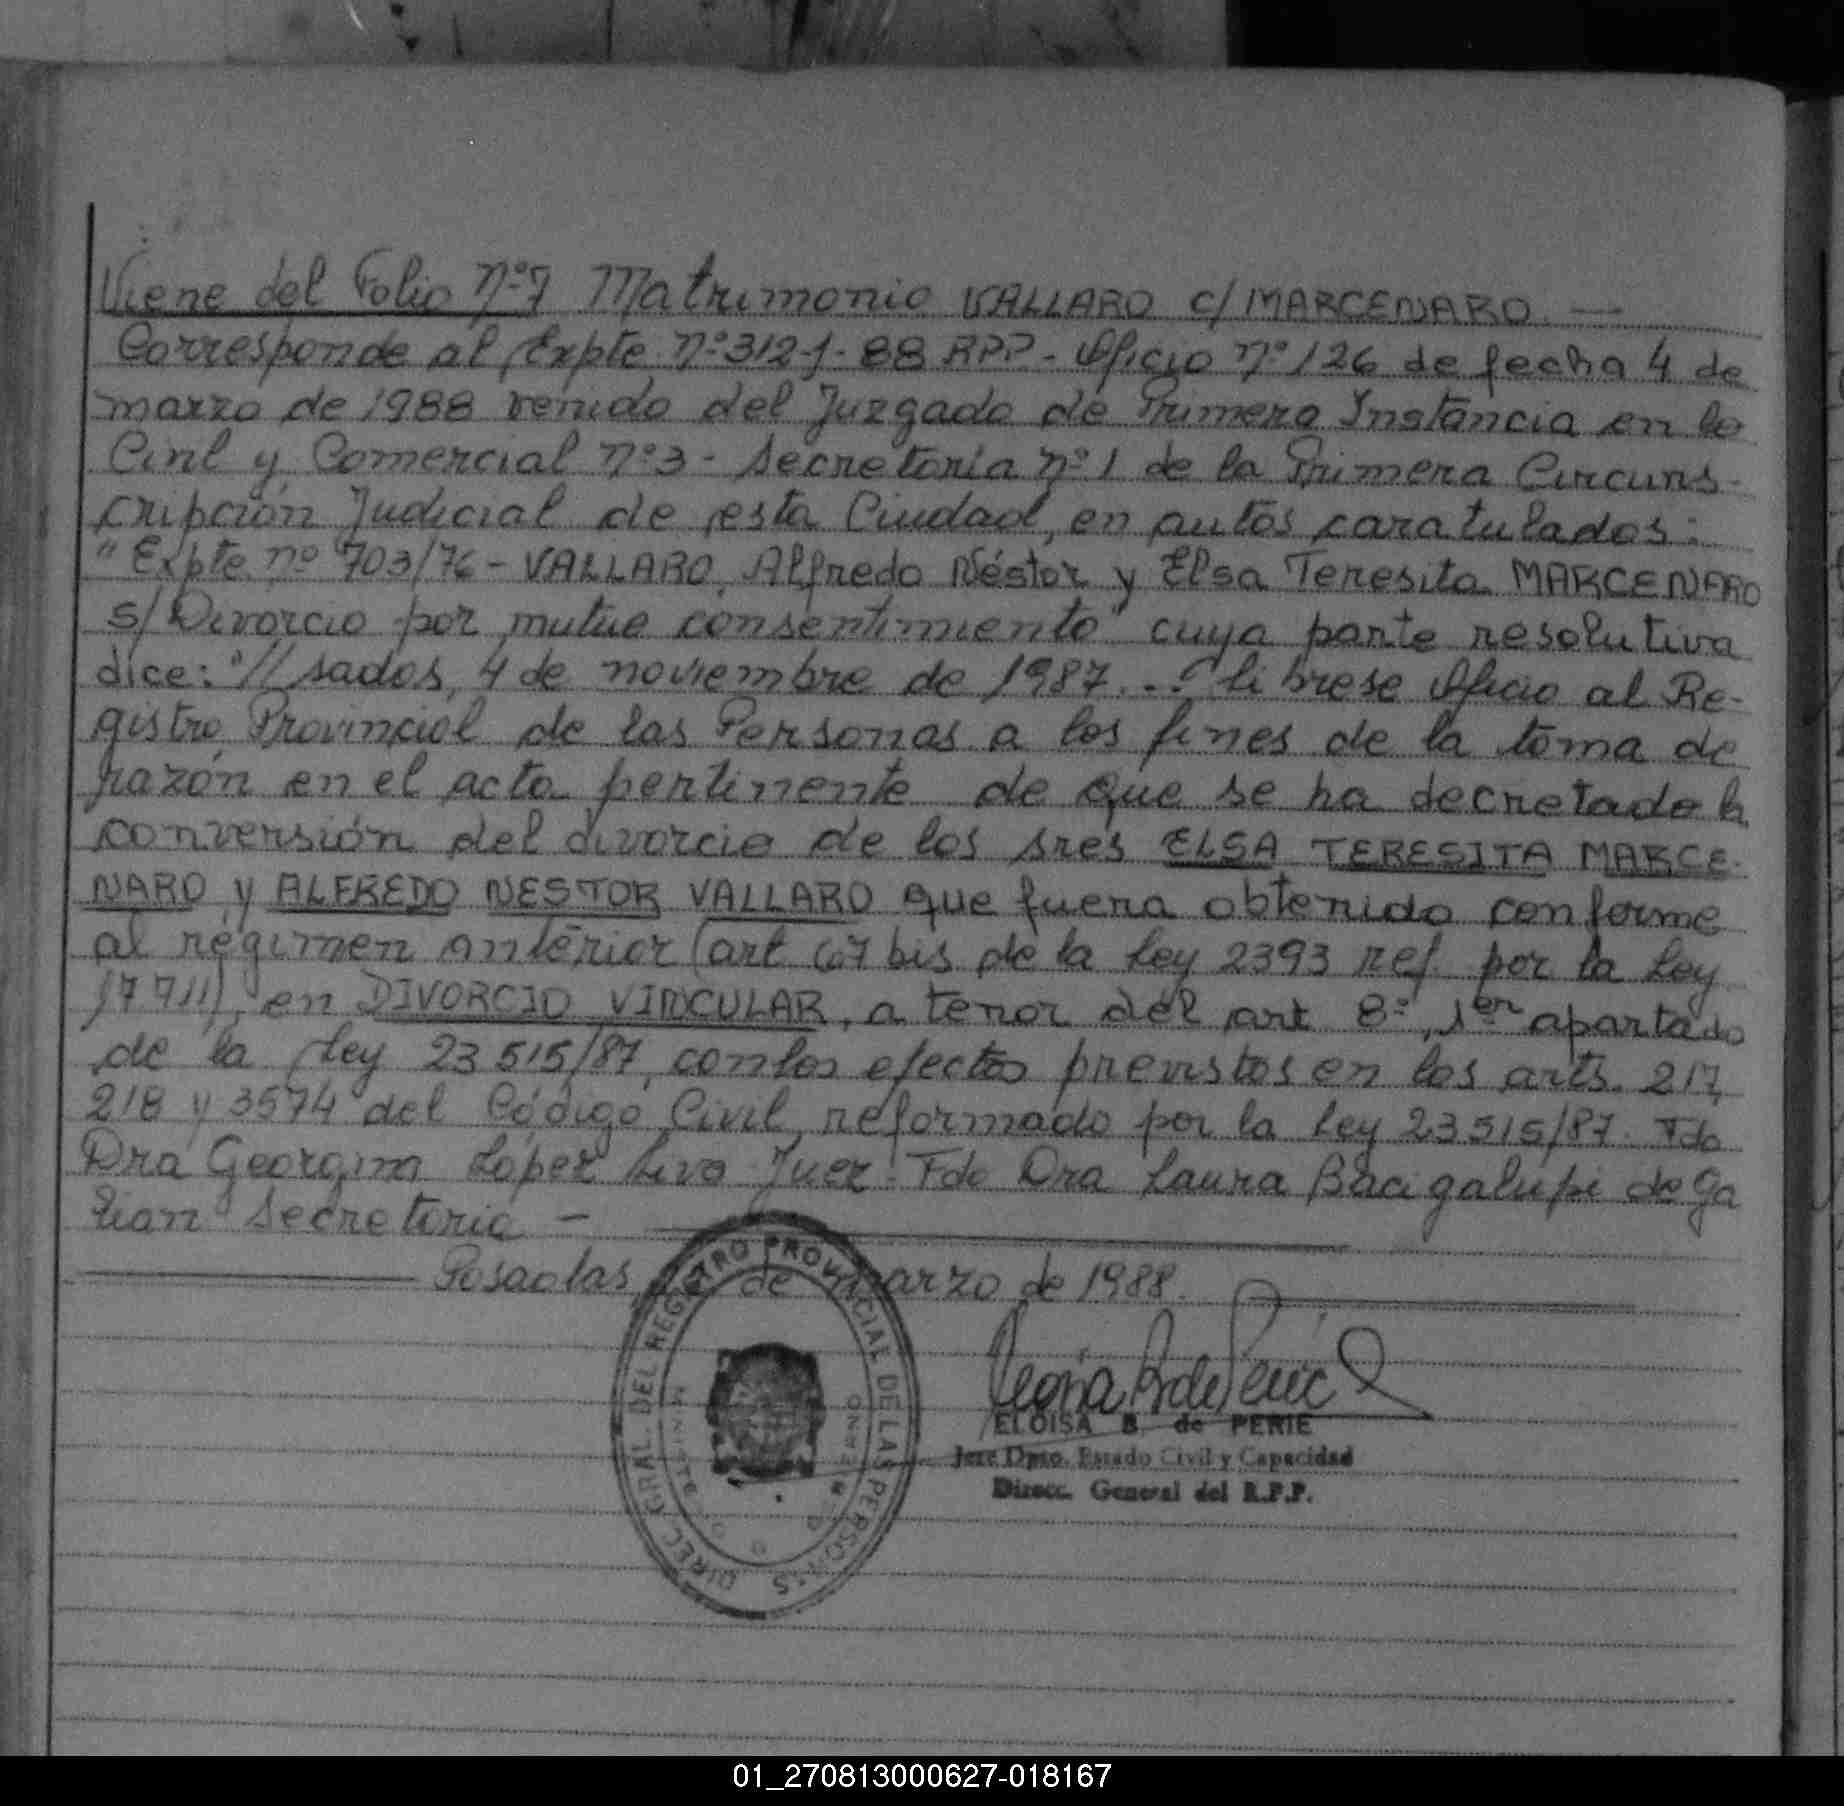 Viene del Folio Nº7 Matrimonio VALLARO c/ MARCENARO. —
Corresponde al Expte. Nº 312-J-88 RPP- Oficio Nº 126 de fecha 4 de
marzo de 1988 venido del Juzgado de Primera Instancia en lo
Civil y Comercial Nº3 - Secretoría Nº 1 de la Primera Circuns-
cripción Judicial de esta Ciudad, en autos caratulados:
"Expte. nº 703/76 - VALLARO, Alfredo Néstor y Elsa Teresita MARCENARO
s/ Divorcio por mutuo consentimiento" cuya parte resolutiva
dice: "//sadas, 4 de noviembre de 1987... líbrese Oficio al Re-
gistro Provincial de las Personas a los fines de la toma de
razón en el acta pertinente de que se ha decretado la
conversión del divorcio de los sres ELSA TERESITA MARCE-
NARO y ALFREDO NESTOR VALLARO que fuera obtenido conforme
al régimen anterior (art 67 bis de la Ley 2393 ref. por la Ley
17711), en DIVORCIO VINCULAR, a tenor del art 8º, 1er apartado
de la Ley 23515/87, con los efectos previstos en los arts. 217,
218 y 3574 del Código Civil, reformado por la Ley 23515/87. Fdo
Dra Georgina López Livo Juez: Fdo Dra Laura Bacigalupi de Ga
lian Secretoria -
Posadas, de marzo de 1988.
DIREC. GRAL. DEL REGISTRO PROVINCIAL DE LAS PERSONAS
MINISTERIO DE GOBIERNO
ELOISA B. de PERIE
Jefe Dpto. Estado Civil y Capacidad
Direcc. General del R.P.P.
01_270813000627-018167